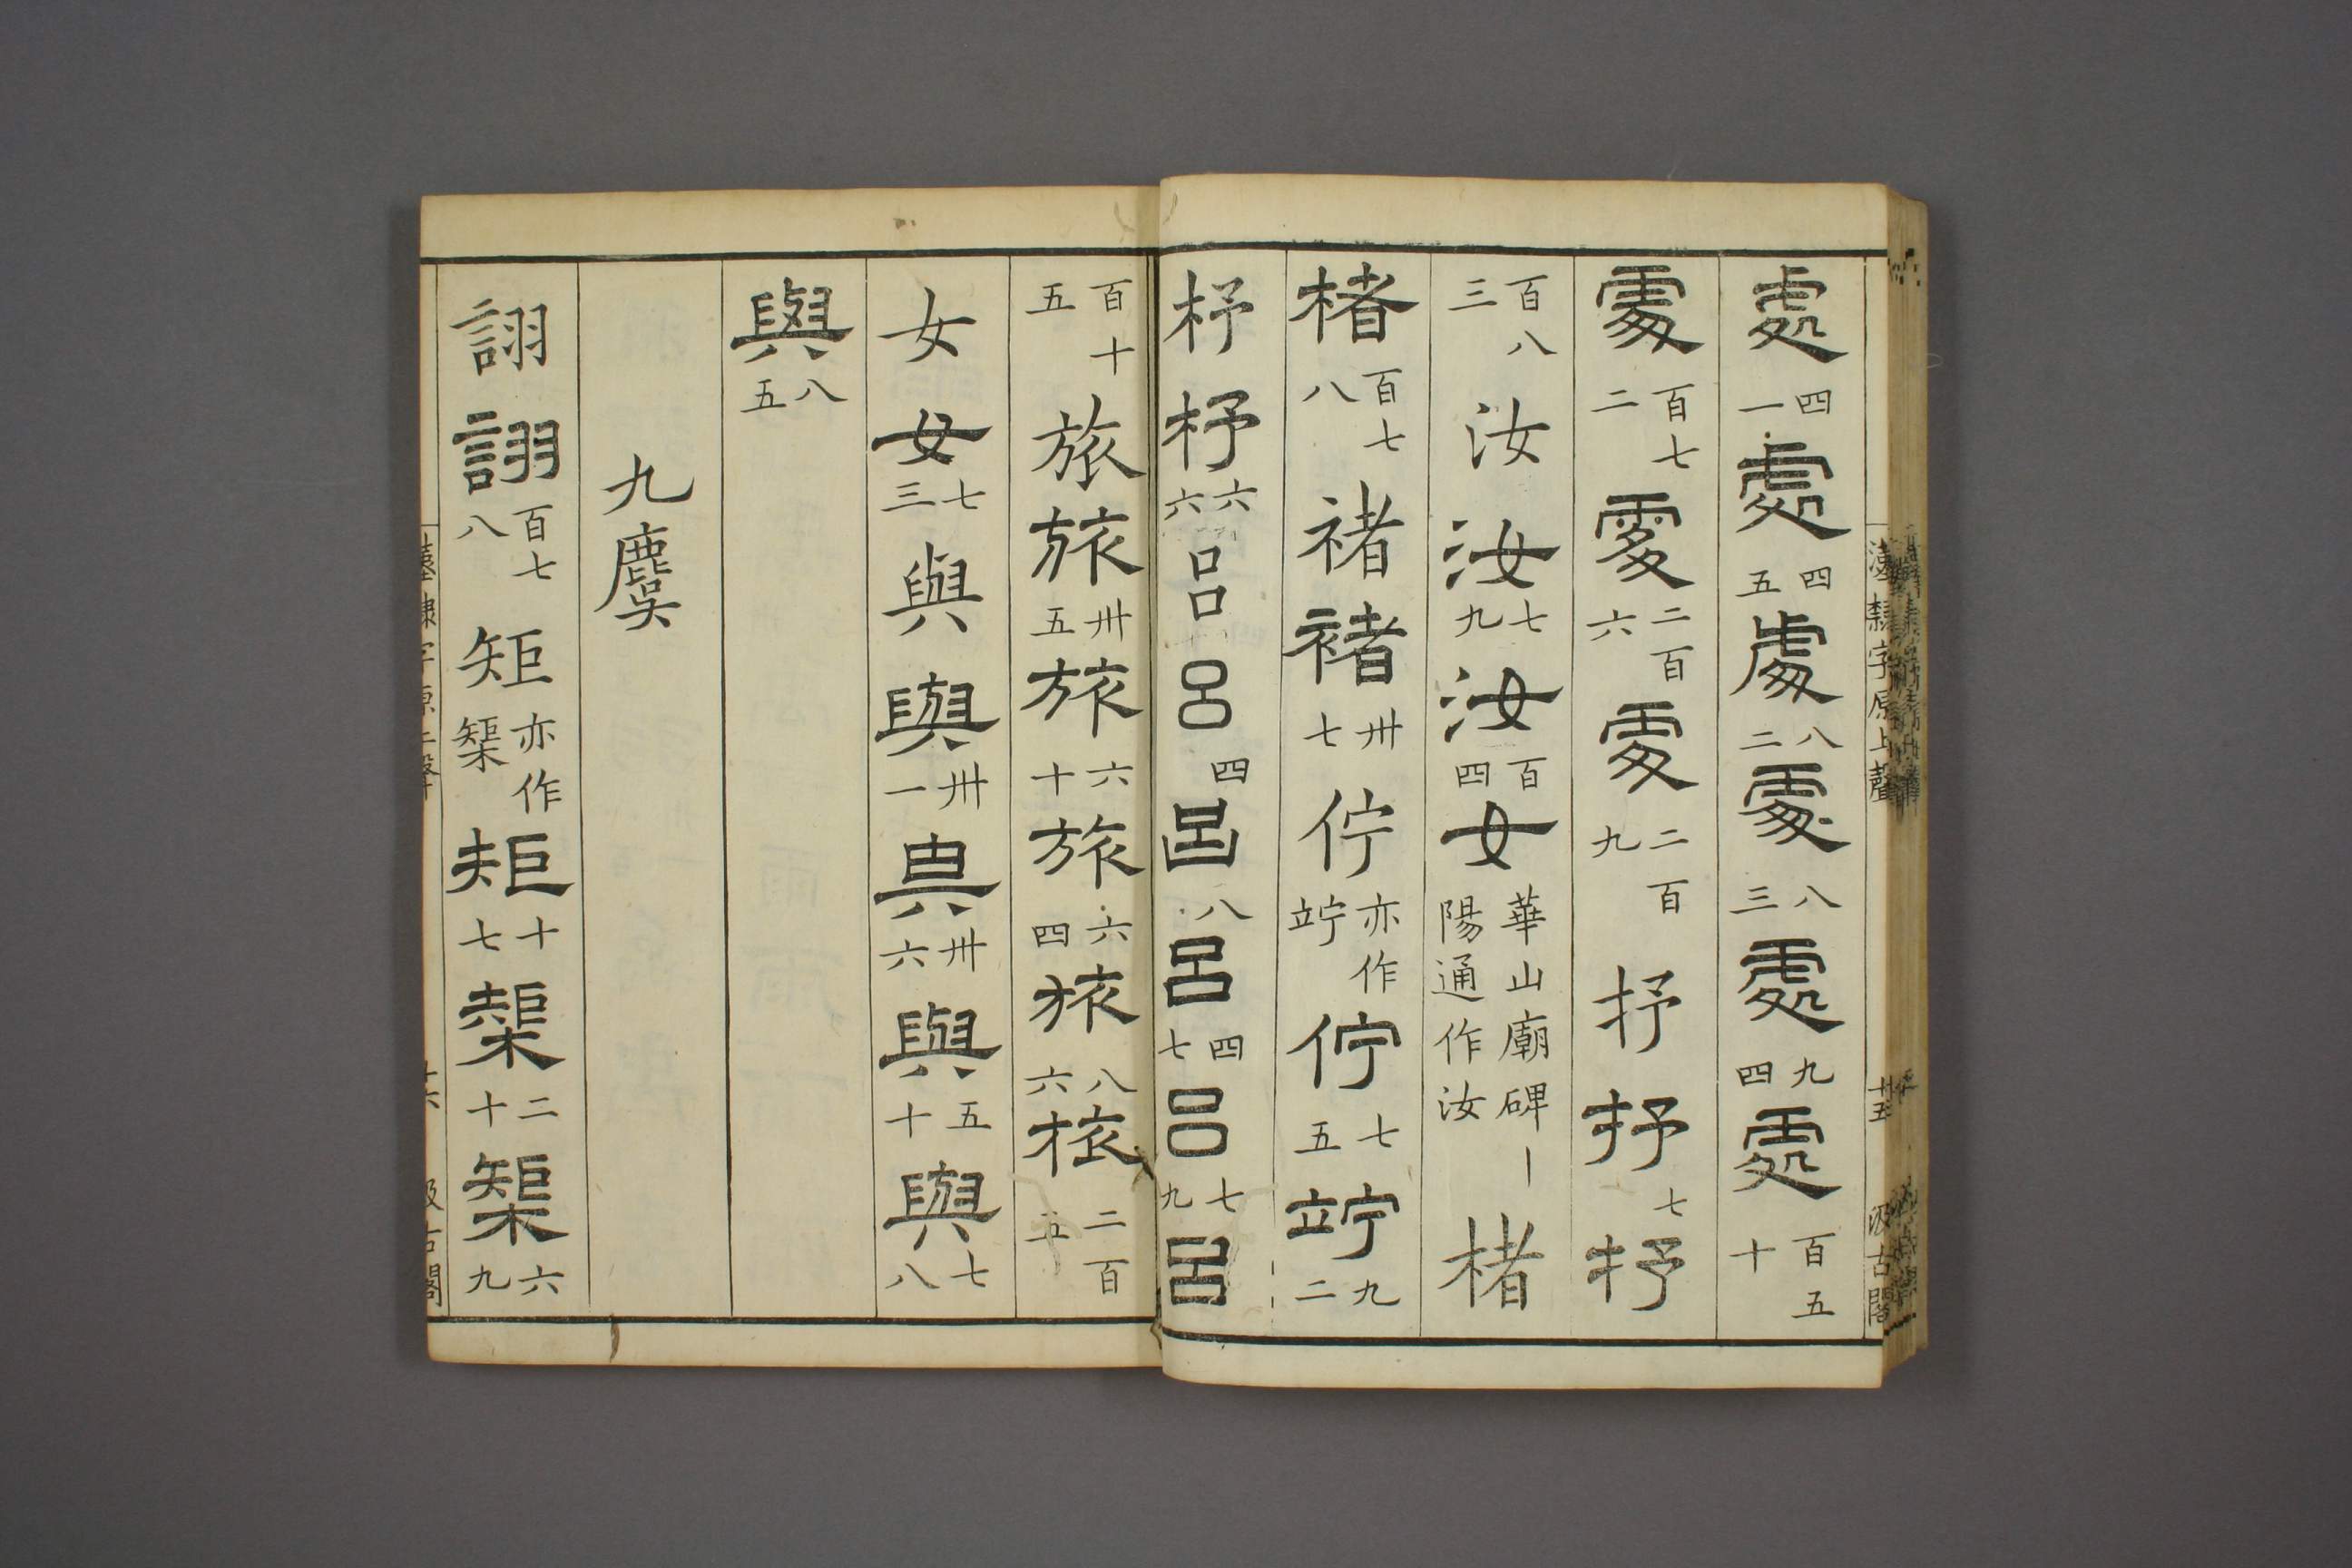 漢隸字原上聲 廿五 汲古閣
處四一處四五處八二處八三處九四處百五十
處百七二處二百六處二百九抒抒七抒
百八三汝汝七九汝百四女華山廟碑丨陽通作汝楮
楮百七八褚褚卅七佇亦作竚佇七五竚九二
杼杼六六呂呂四呂八呂四七呂七九呂
百十五旅旅卅五旅六十旅六四旅八六旅二百五
女女七三與與卅一與卅六與五十與七八
與八五
九麌
詡詡百七八矩亦作榘矩十七榘二十榘六九
漢隸字原上聲 十六 汲古閣